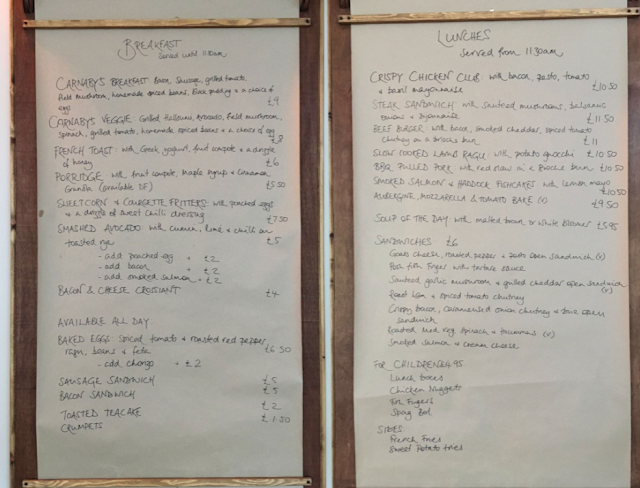 BREAKFAST
served until 11.30am
CARNABYS BREAKFAST Bacon, Sausage, grilled tomato,
field mushroom, homemade spiced beans, Black pudding & a choice of
eggs £9
CARNABYS VEGGIE Grilled Halloumi, avocado, field mushroom,
spinach, grilled tomato, homemade spiced beans & a choice of egg
£8
FRENCH TOAST with Greek yogurt, fruit compote & a drizzle
of honey £6
PORRIDGE with fruit compote, maple syrup & cinnamon
Granola (available DF) £5.50
SWEETCORN & COURGETTE FRITTERS with poached eggs
& a drizzle of sweet chilli dressing
£7.50
SMASHED AVOCADO with cumin, lime & chilli on
toasted rye £5
- add poached egg + £2
- add bacon + £2
- add smoked salmon + £2
BACON & CHEESE CROISSANT £4
AVAILABLE ALL DAY
BAKED EGGS Spiced tomato & roasted red pepper
beans & feta £6.50
- add chorizo + £2
SAUSAGE SANDWICH £5
BACON SANDWICH £5
TOASTED TEACAKE £2
CRUMPETS £1.50
LUNCHES
served from 11.30am
CRISPY CHICKEN CLUB with bacon, pesto, tomato
& basil mayonnaise £10.50
STEAK SANDWICH with sauteed mushrooms, balsamic
onions & mayonnaise £11.50
BEEF BURGER with bacon, smoked cheddar, spiced tomato
chutney on a brioche bun £11
SLOW COOKED LAMB RAGU with potato gnocchi £10.50
BBQ PULLED PORK with red slaw in a Brioche bun £10.50
SMOKED SALMON & HADDOCK FISHCAKES with lemon mayo
£10.50
AUBERGINE, MOZZARELLA & TOMATO BAKE (v)
£9.50
SOUP OF THE DAY with malted brown or white bloomer £5.95
SANDWICHES £6
Goats cheese, roasted pepper & pesto open sandwich (v)
Fish finger with tartare sauce
Sauteed garlic mushroom & grilled cheddar open sandwich
(v)
Roast ham & spiced tomato chutney
Crispy bacon, caramelised onion chutney & brie open
sandwich
Roasted Med veg, spinach & houmous (v)
Smoked salmon & cream cheese
FOR CHILDREN £4.95
Lunch boxes
Chicken Nuggets
Fish Fingers
Spag Bol
SIDES
French Fries
Sweet Potato fries